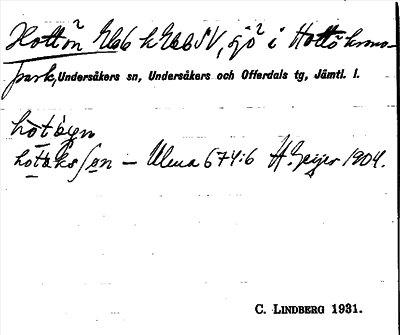 Hottön Ebb k Ebb SV, sjö i Hottö krono-
park, Undersåkers sn, Undersåkers och Offerdals tg, Jämtl. l.
hòtöyn
— Ulma 674:6 H. Geijer 1904.
C. LINDBERG 1931.